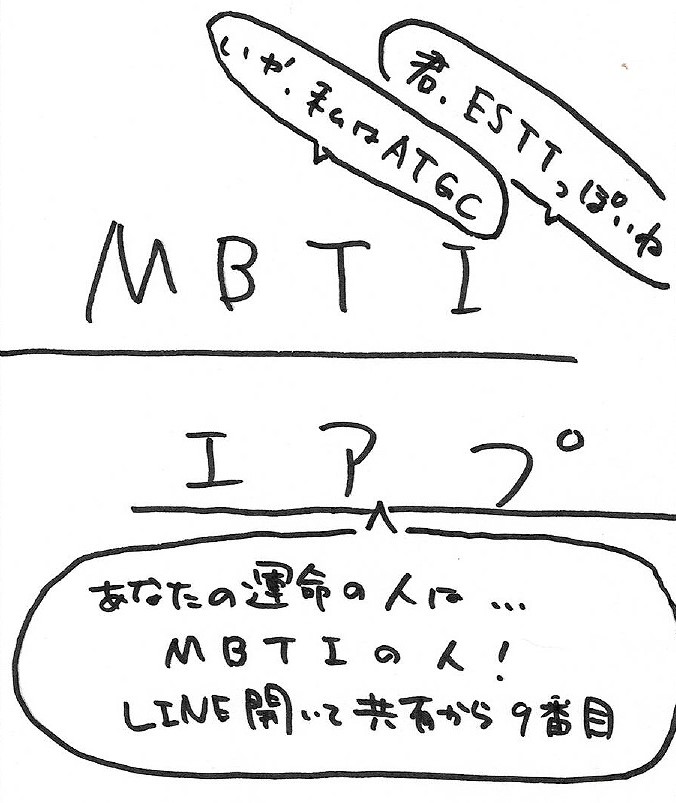 君、ESTTっぽいね
いや、私はATGC
MBTI
エアプ
あなたの運命の人は…
MBTIの人!
LINE開いて共有から9番目